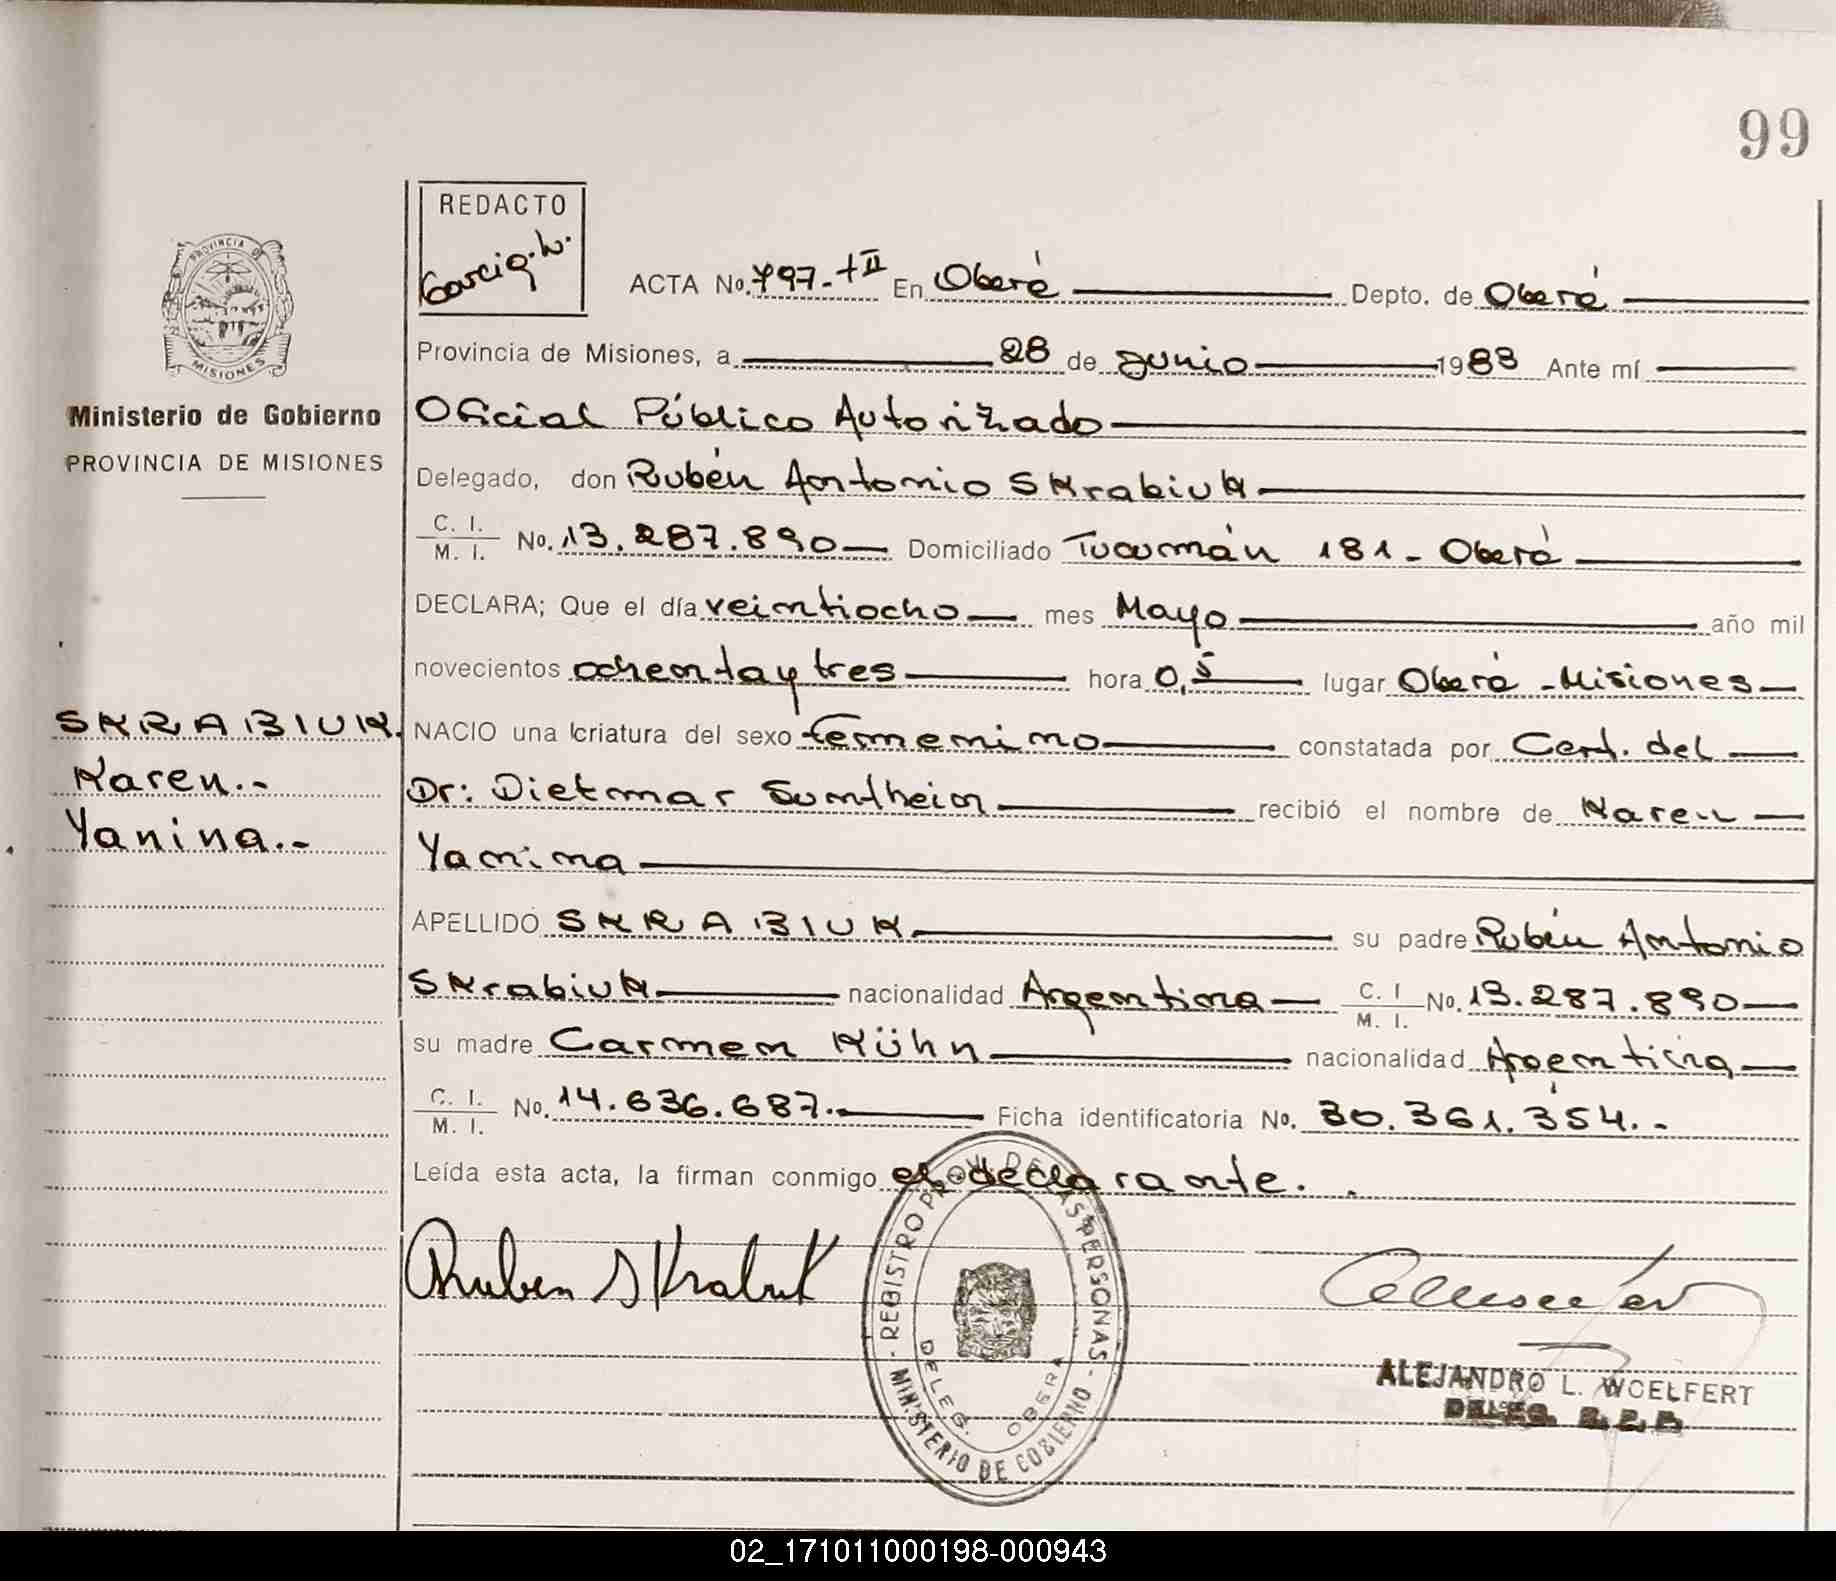 99
REDACTO
Garcia. W.
PROVINCIA DE
MISIONES
Ministerio de Gobierno
PROVINCIA DE MISIONES
ACTA No. 797-tII En Oberá Depto. de Oberá
Provincia de Misiones, a 28 de Junio 1983 Ante mí
Oficial Público Autorizado
Delegado, don Rubén Antonio Skrabiuk
C. I.
M. I. No. 13.287.890 Domiciliado Tucumán 181 - Oberá
DECLARA; Que el día veintiocho mes Mayo año mil
novecientos ochentaytres hora 0,5 lugar Oberá - Misiones
NACIO una criatura del sexo femenino constatada por Cert. del
Dr: Dietmar Sontheim recibió el nombre de Karen
Yanina
SKRABIUK.
Karen.-
Yanina.-
APELLIDO SKRABIUK su padre Rubén Antonio
Skrabiuk nacionalidad Argentina C. I
M. I. No. 13.287.890
su madre Carmen Kühn nacionalidad Argentina
C. I.
M. I. No. 14.636.687.- Ficha identificatoria No. 30.361.354.-
Leída esta acta, la firman conmigo el declarante.
Ruben Skrabiuk
REGISTRO PROV. DE LAS PERSONAS - MINISTERIO DE GOBIERNO -
DELEG. OBERA
ALEJANDRO L. WOELFERT
DELEG. R. P. P.
02_171011000198-000943